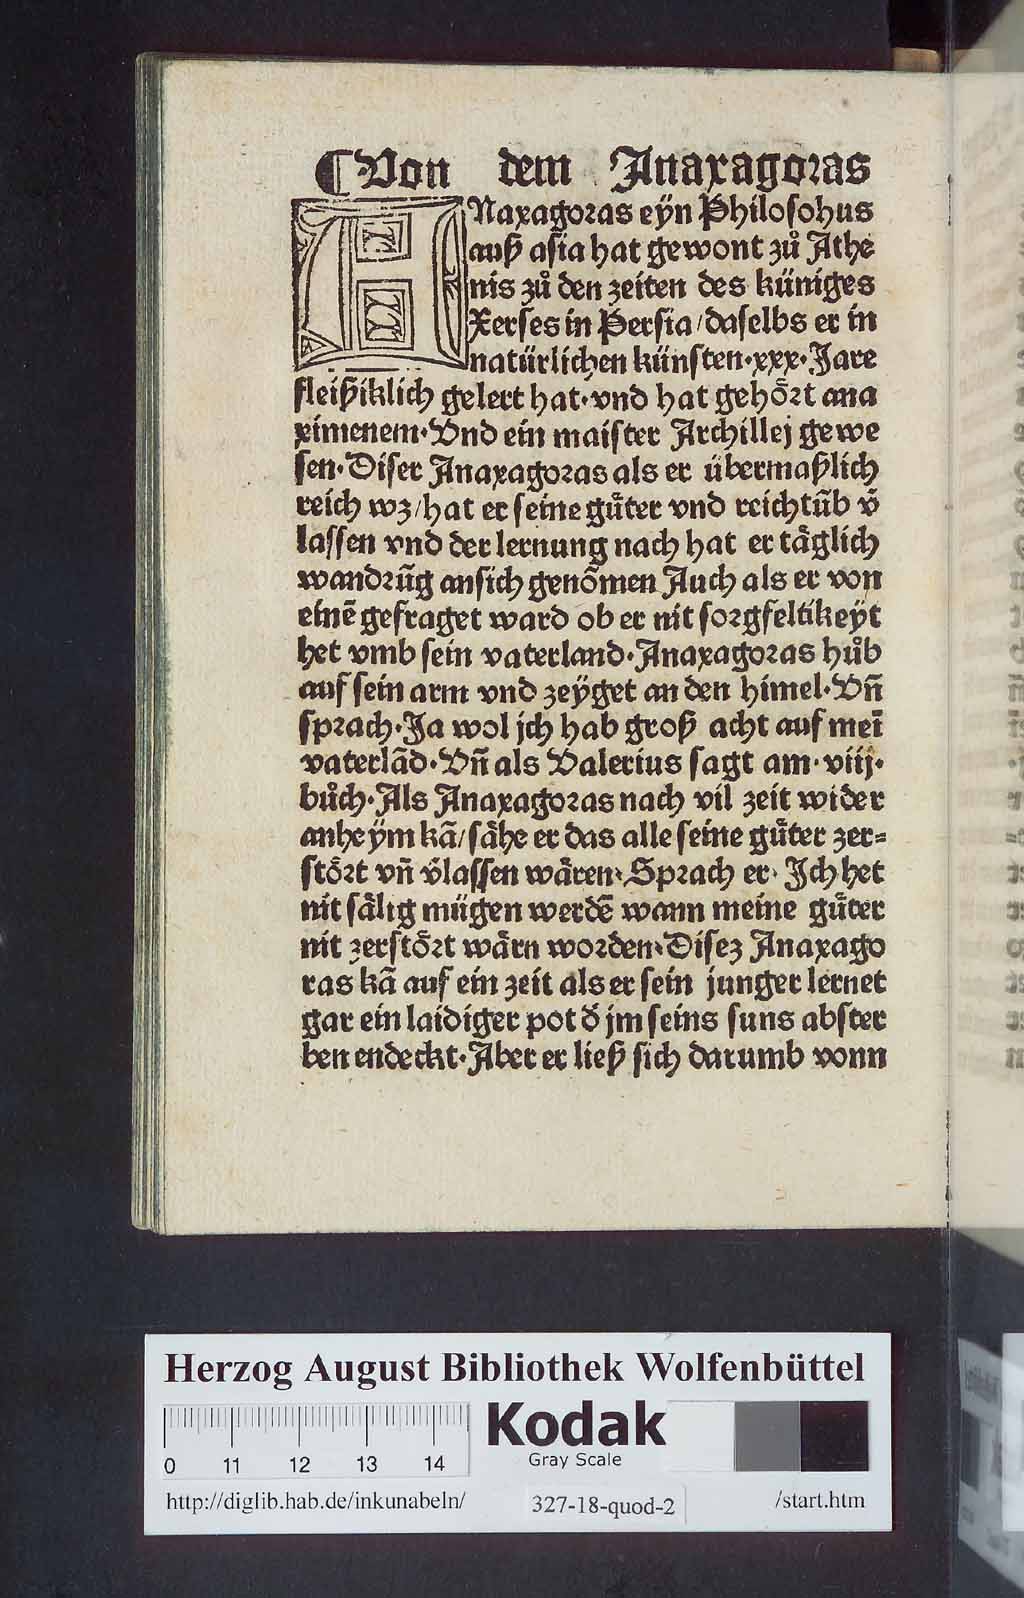 ¶ Von dem Anaxagoras
ANaxagoras eÿn Philosohus
auß asia hat gewont zů Athe
nis zů den zeiten des küniges
Xerses in Persia/daselbs er in
natürlichen künsten·xxx·Jare
fleißiklich gelert hat·vnd hat gehört ana
ximenem·Vnd ein maister Archillej gewe
sen·Diser Anaxagoras als er übermaßlich
reich wz/hat er seine gůter vnd reichtūb v̄
lassen vnd der lernung nach hat er täglich
wandrūg ansich genōmen Auch als er von
einē gefraget ward ob er nit sorgfeltikeÿt
het vmb sein vaterland·Anaxagoras hůb
auf sein arm vnd zeÿget an den himel·Vn̄
sprach·Ja wol jch hab groß acht auf meī
vaterlād·Vn̄ als Valerius sagt am·viij·
bůch·Als Anaxagoras nach vil zeit wider
anheÿm kā/sähe er das alle seine güter zer=
stört vn̄ v̄lassen wären·Sprach er·Ich het
nit sälig mügen werdē wann meine güter
nit zerstört wärn worden·Disez Anaxago
ras kā auf ein zeit als er sein junger lernet
gar ein laidiger pot d̄ jm seins suns abster
ben endeckt·Aber er ließ sich darumb vonn
Herzog August Bibliothek Wolfenbüttel
Kodak
Gray Scale
0 11 12 13 14
http://diglib.hab.de/inkunabeln/ 327-18-quod-2 /start.htm